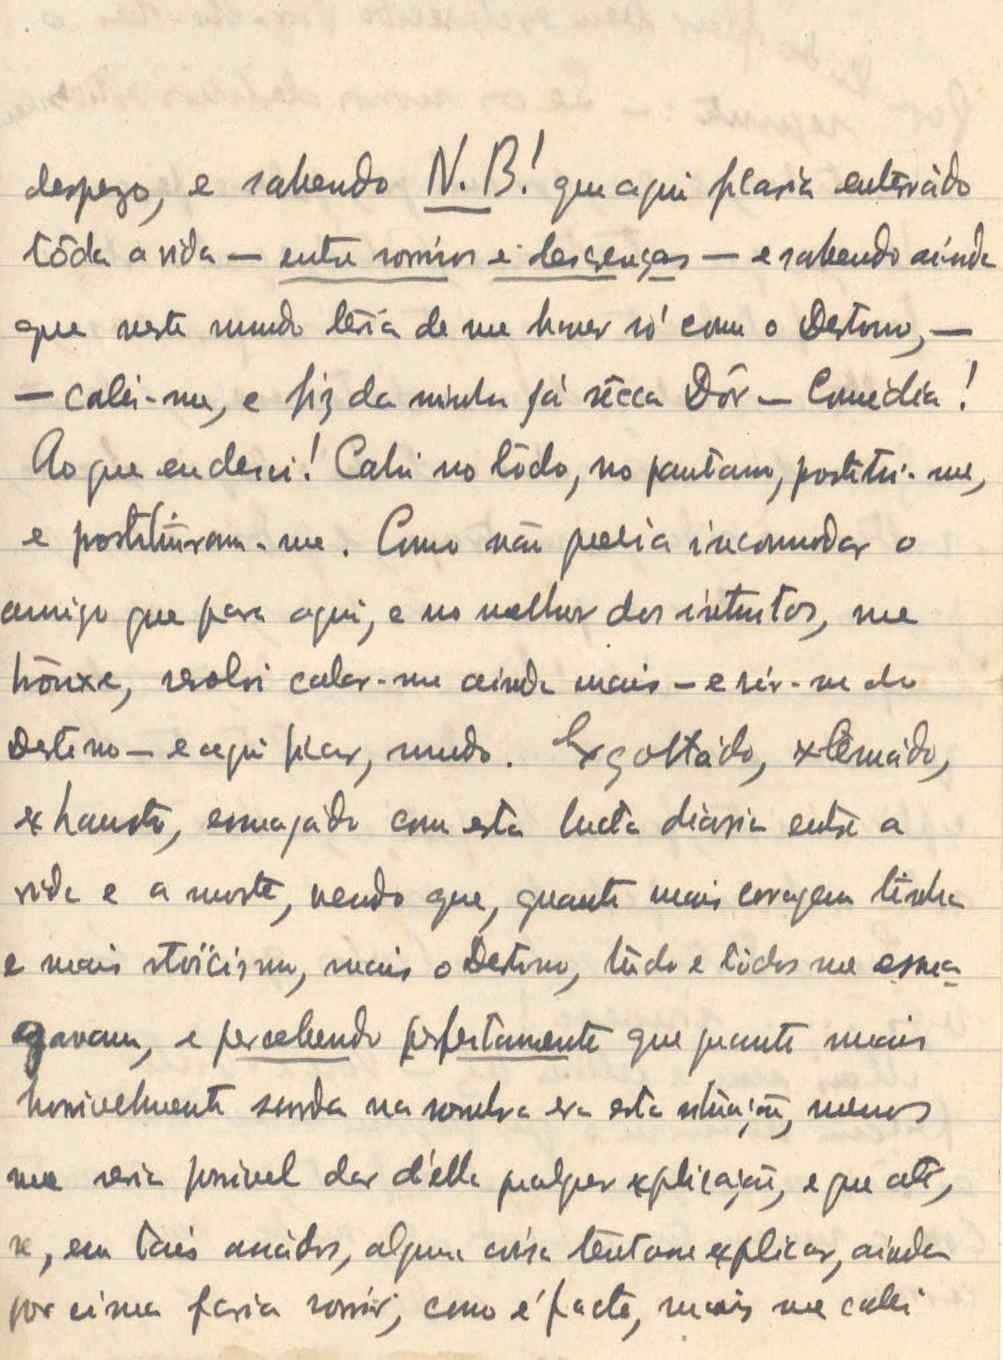 despezo, e sabendo N. B.! que aqui ficaria enterrádo
tôda a vida — entre sorrisos e descrenças — e sabendo ainda
que neste mundo teria de me haver só com o Destino, —
— calei-me, e fiz da minha já sêcca Dôr — Comédia!
Ao que eu desci! Cahi no lôdo, no pantano, postitui-me,
e postituiram-me. Como não podia incommodar o
amigo que para aqui, e no melhor dos intuitos, me
trouxe, resolvi calar-me ainda mais — e rir-me do
Destino — e aqui ficar, mudo. Exgottádo, extênuádo,
exhausto, esmagádo com esta lucta diária entre a
vida e a morte, vendo que, quanto mais coragem tinha
e mais stoïcismo, mais o Destino, tudo e todos me esma-
gavam, e percebendo perfeitamente que quanto mais
horrivelmente surda na sombra era esta situação, menos
me seria possivel dar d'ella qualquer explicação, e que até,
se, em taes assados, alguma coisa tentasse explicar, ainda
por cima faria sorrir, como é facto, mais me calei